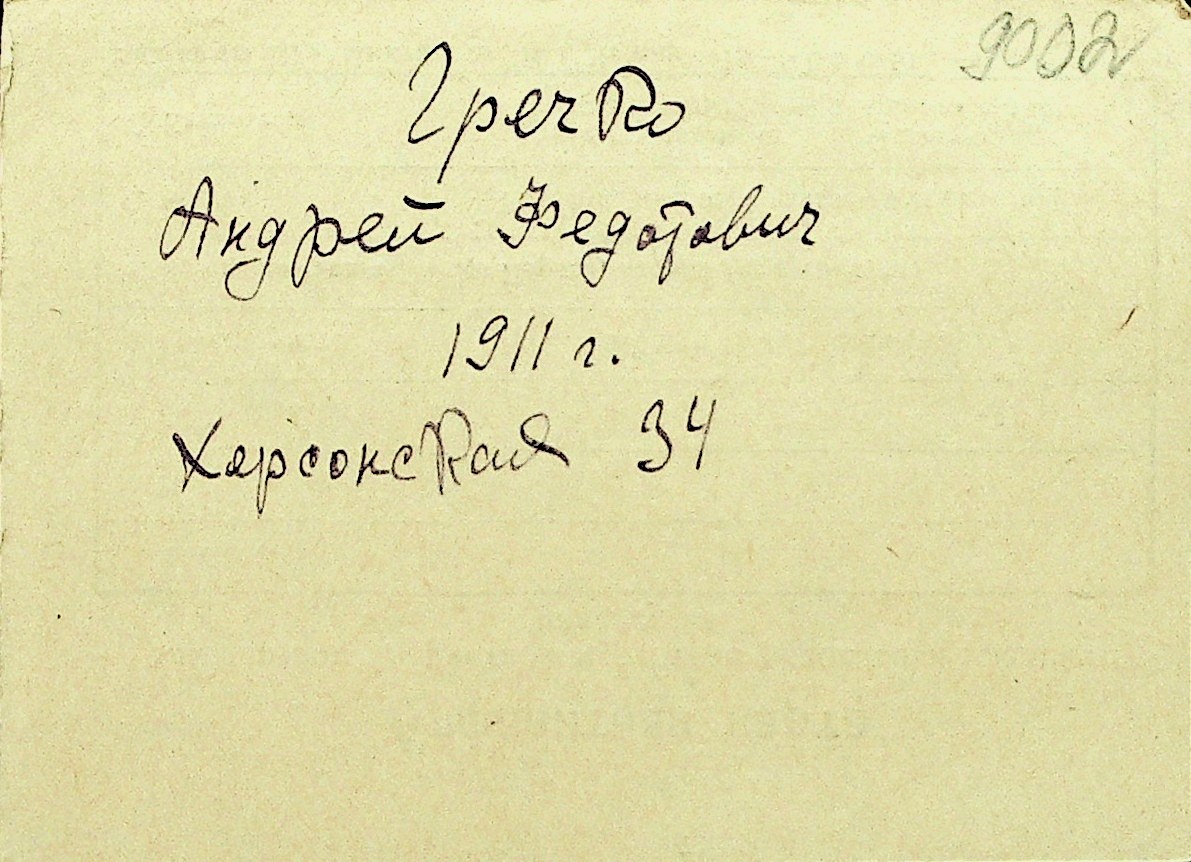 9002
Гречко
Андрей Федотович
1911 г.
Херсонская 34